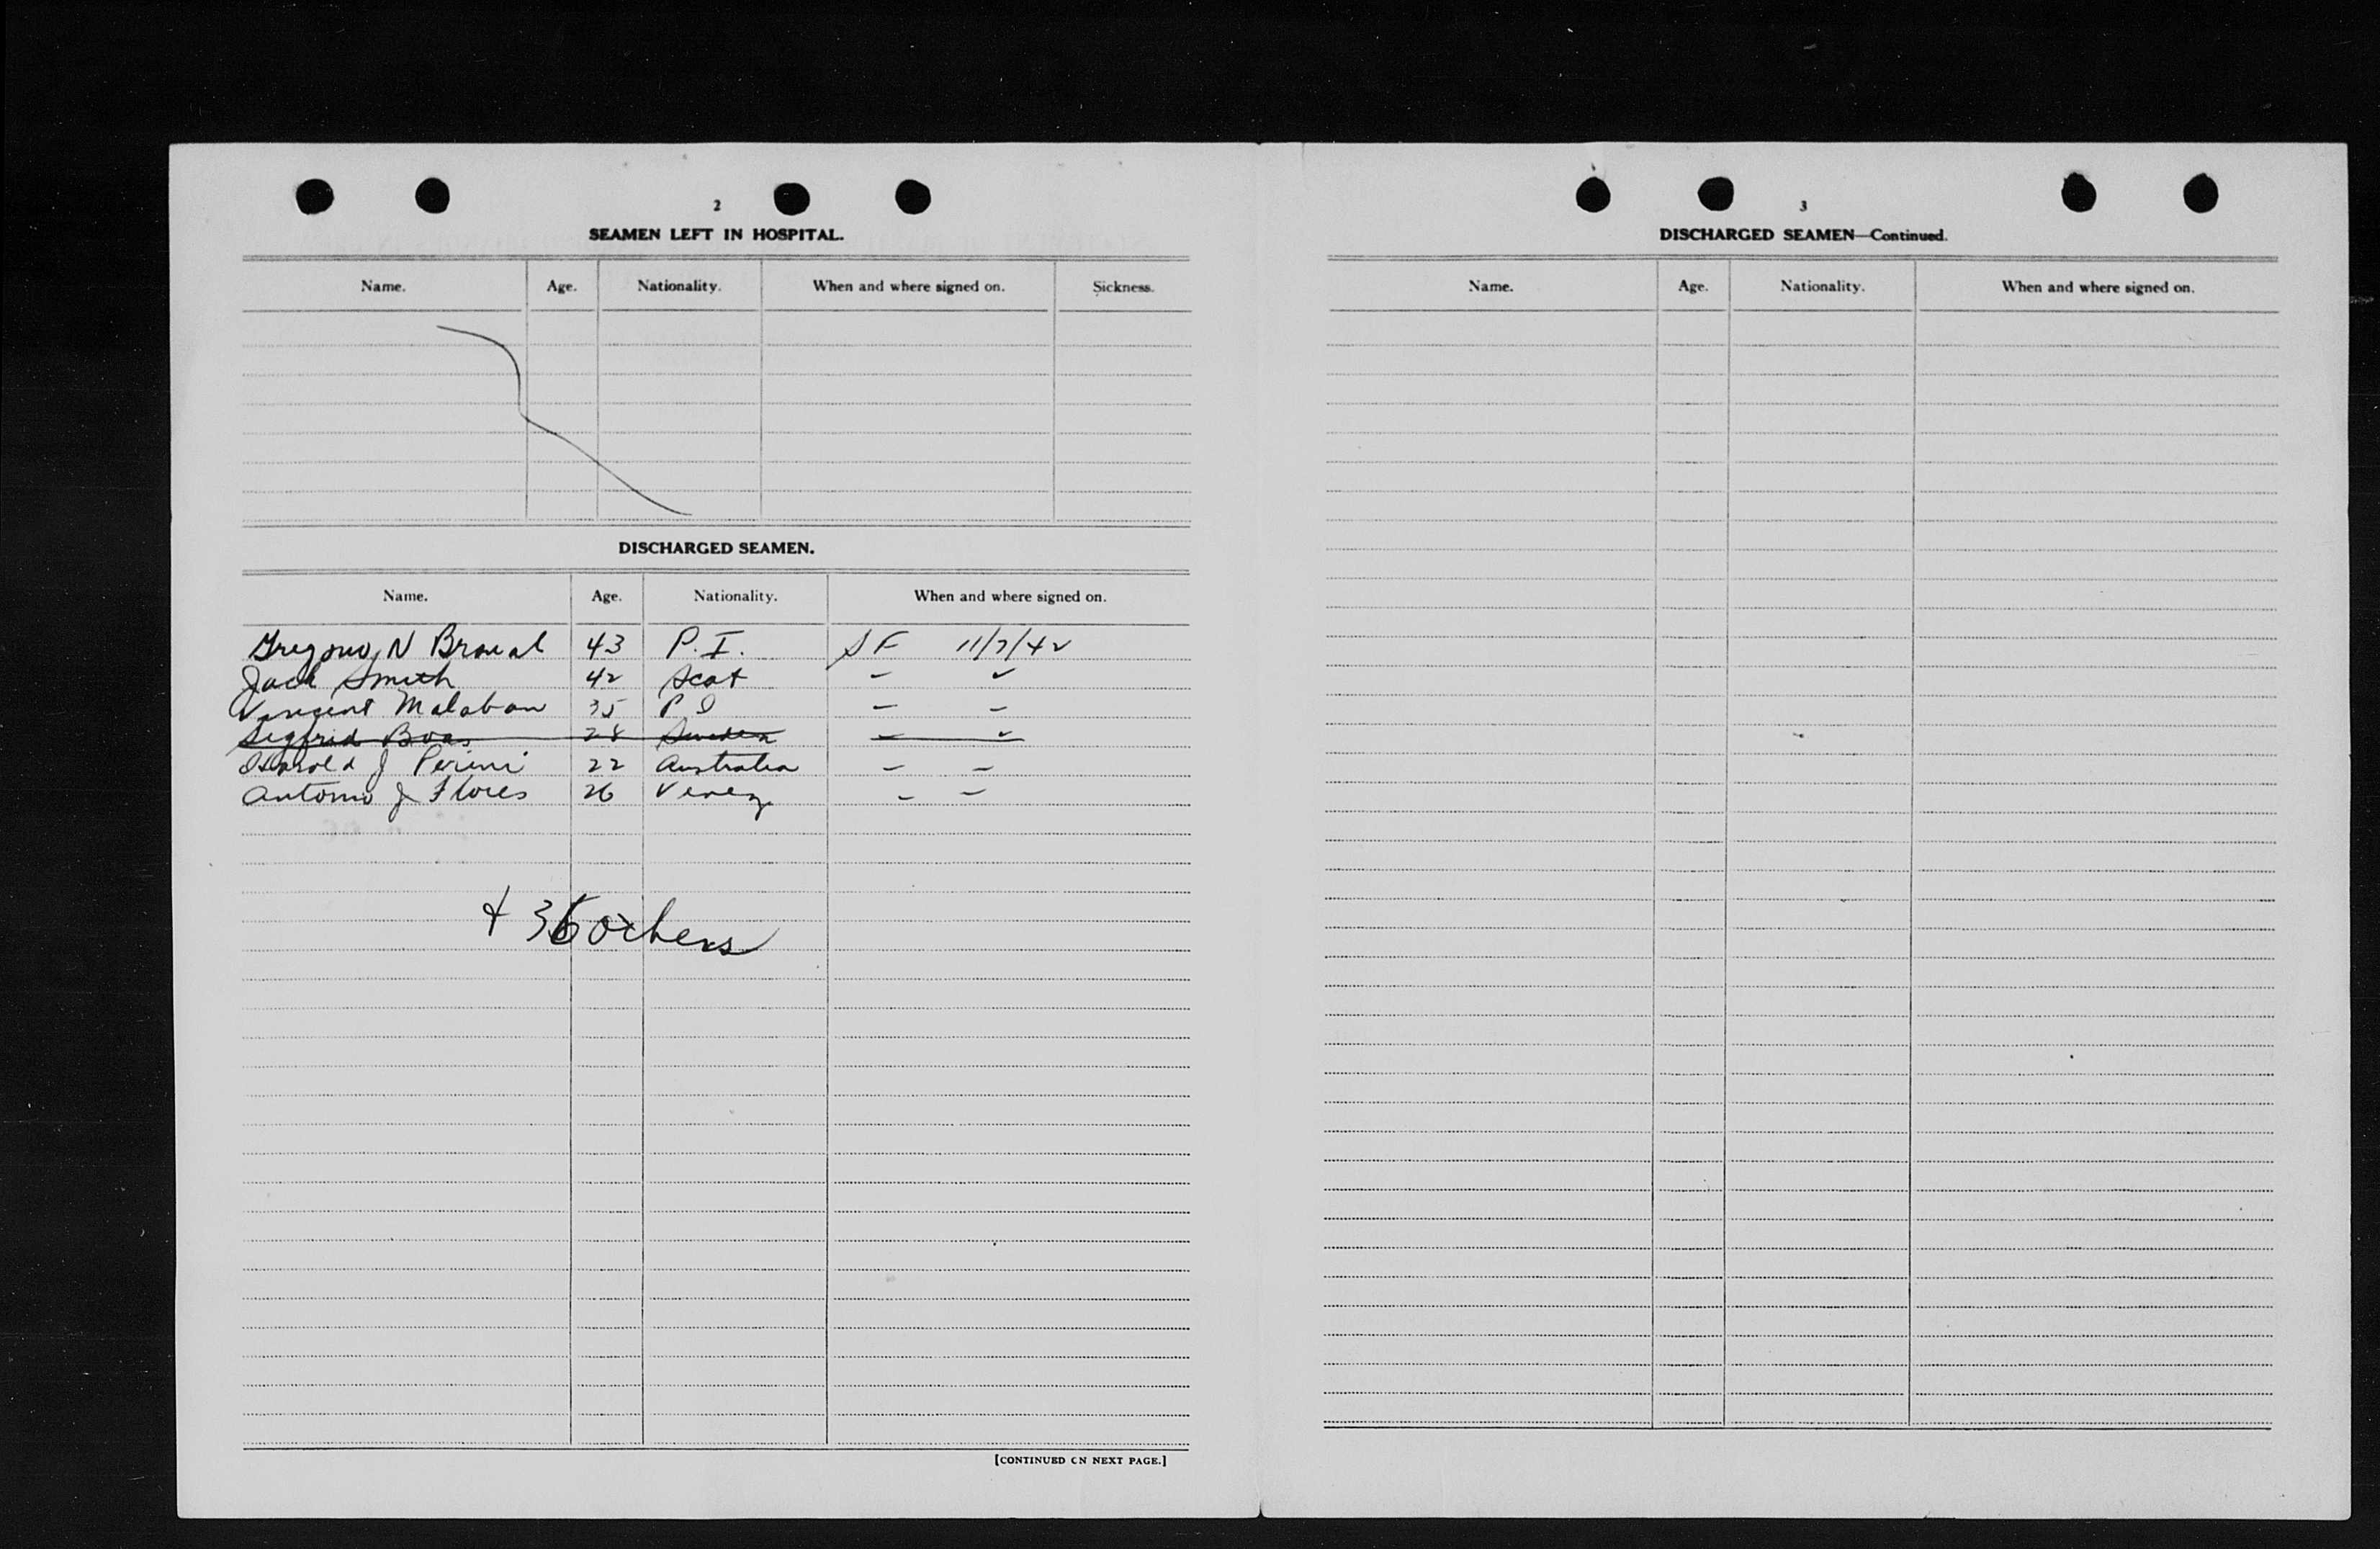 2
SEAMEN LEFT IN HOSPITAL.
Name. Age. Nationality. When and where signed on. Sickness.
DISCHARGED SEAMEN.
Name. Age. Nationality. When and where signed on.
N 43 P.I. SF 11/7/42
Jack Smith 42 Scot
Vincent Malaban 35 P I
Sigfrid Boas 28 Sweden
Harold J Perini 22 Australia
Antonio J Flores 26 Venez
+ 36 others
[CONTINUED ON NEXT PAGE.]
3
DISCHARGED SEAMEN—Continued.
Name. Age. Nationality. When and where signed on.